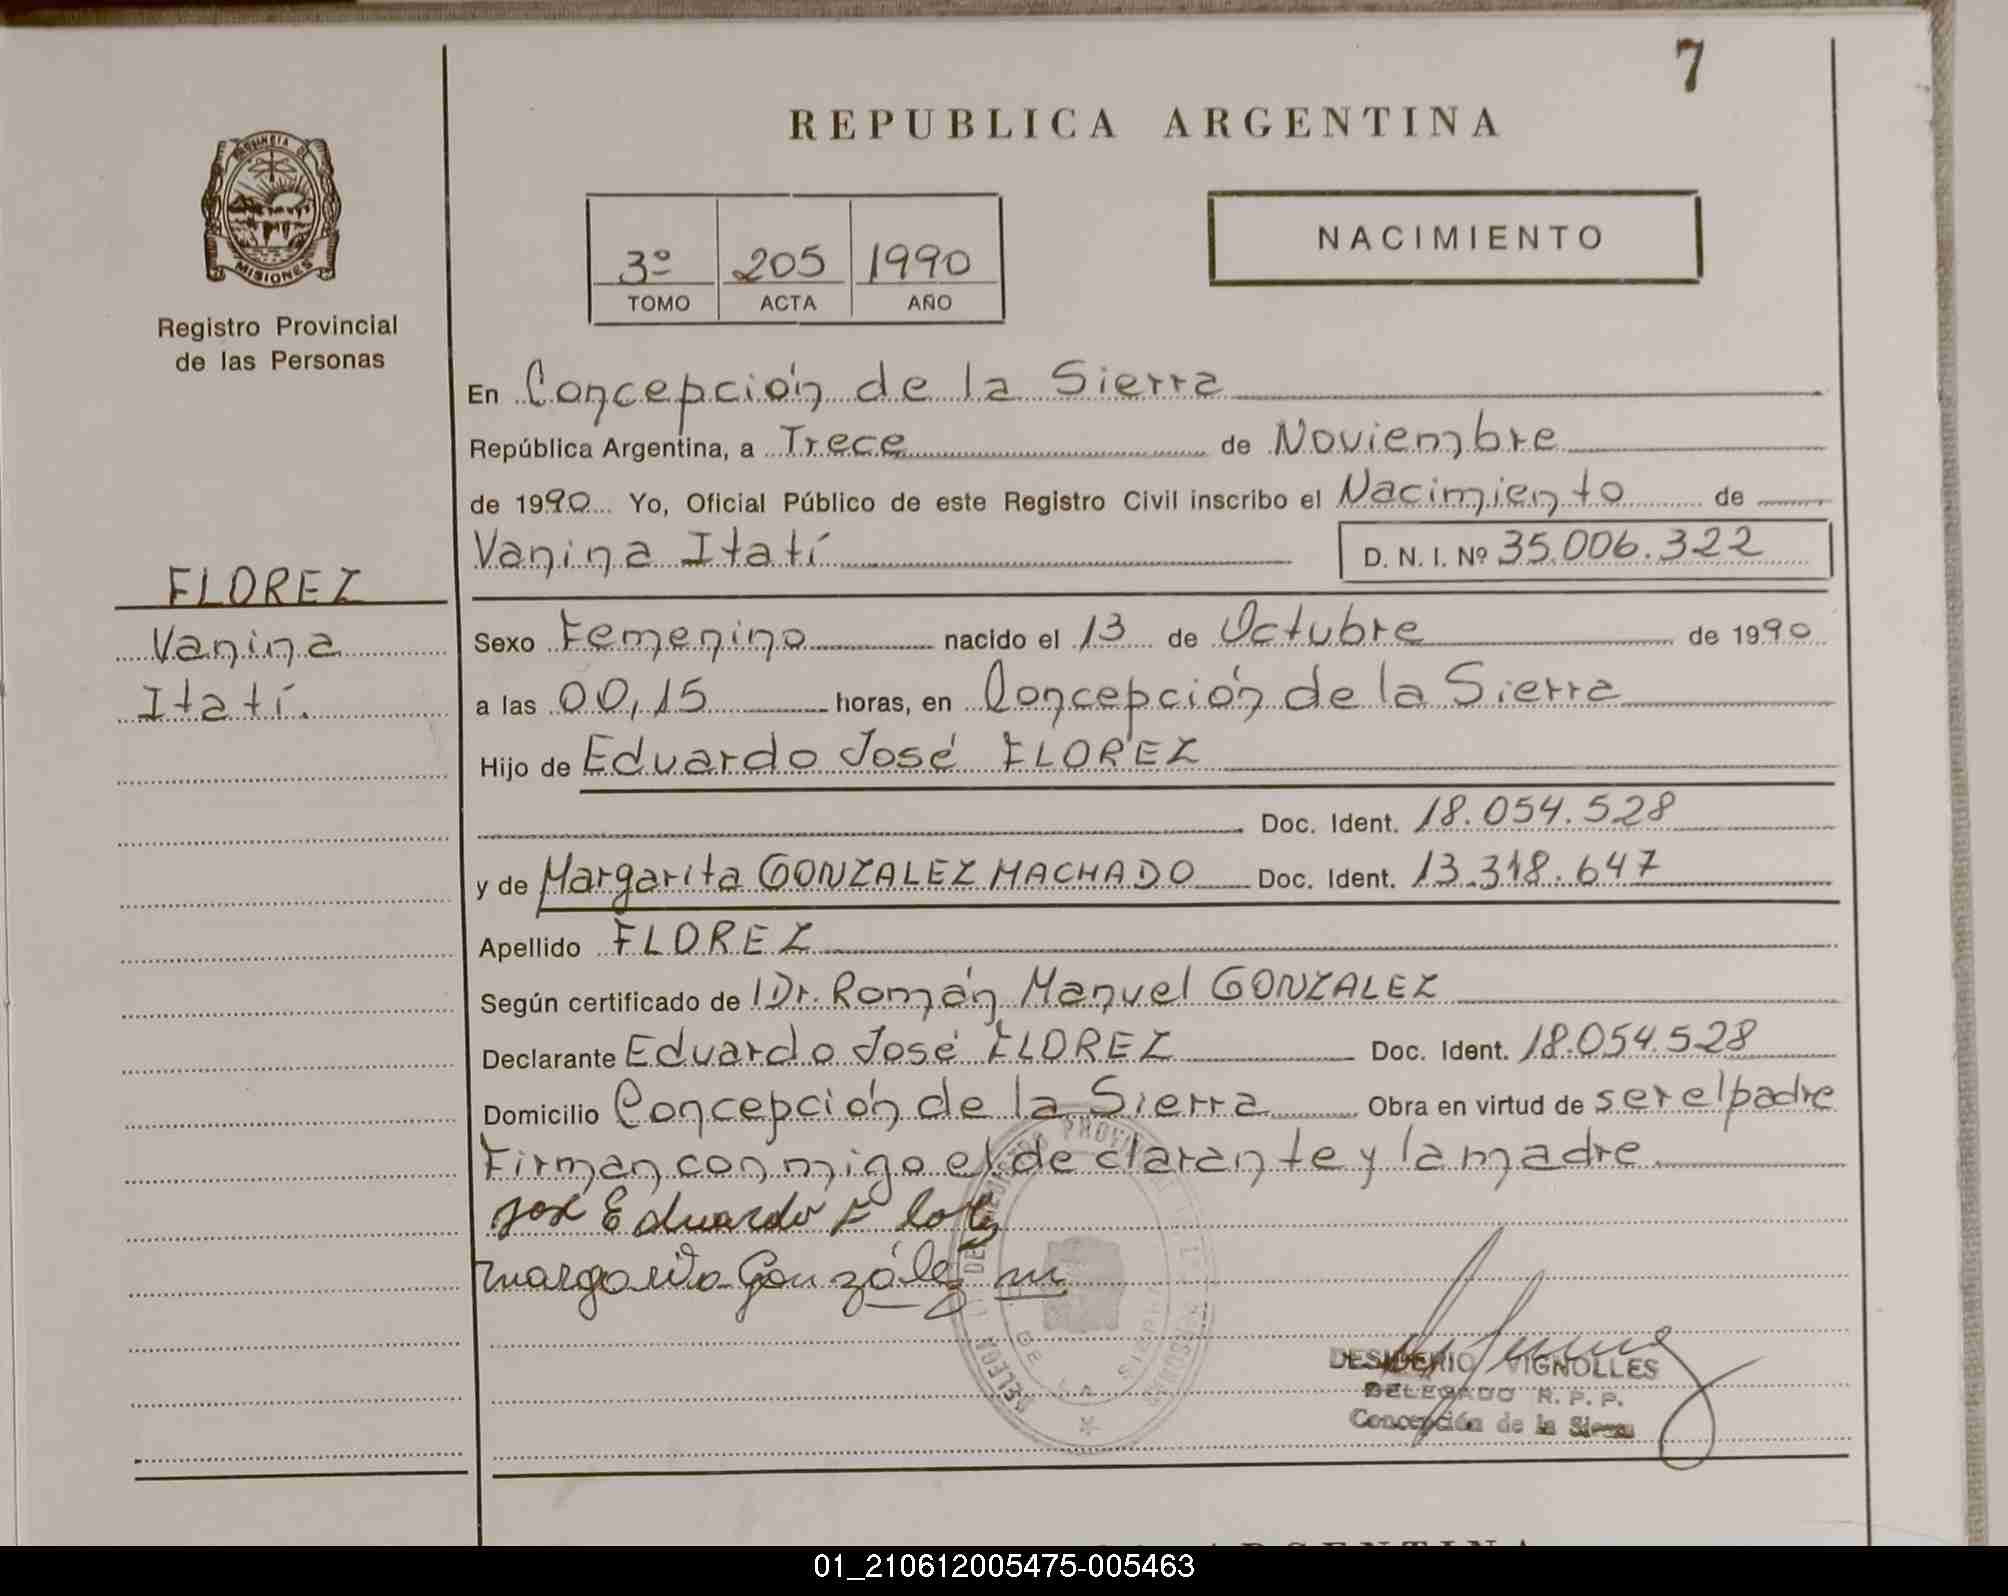 7
REPUBLICA ARGENTINA
PROVINCIA DE
MISIONES
Registro Provincial
de las Personas
3º 205 1990
TOMO ACTA AÑO
NACIMIENTO
En Concepción de la Sierra
República Argentina, a Trece de Noviembre
de 1990 Yo, Oficial Público de este Registro Civil inscribo el Nacimiento de
Vanina Itatí D. N. I. Nº 35.006.322
FLOREZ
Vanina
Itatí.
Sexo Femenino nacido el 13 de Octubre de 1990
a las 00,15 horas, en Concepción de la Sierra
Hijo de Eduardo José FLOREZ
Doc. Ident. 18.054.528
y de Margarita GONZALEZ MACHADO Doc. Ident. 13.318.647
Apellido FLOREZ
Según certificado de Dr. Román Manuel GONZALEZ
Declarante Eduardo José FLOREZ Doc. Ident. 18.054.528
Domicilio Concepción de la Sierra Obra en virtud de ser el padre
Firman conmigo el declarante y la madre
José Eduardo Florez
Margarita González m
DE LA SIERRA
MISIONES
DESIDERIO VIGNOLLES
DELEGADO R. P. P.
Concepción de la Sierra
ARGENTINA
01_210612005475-005463